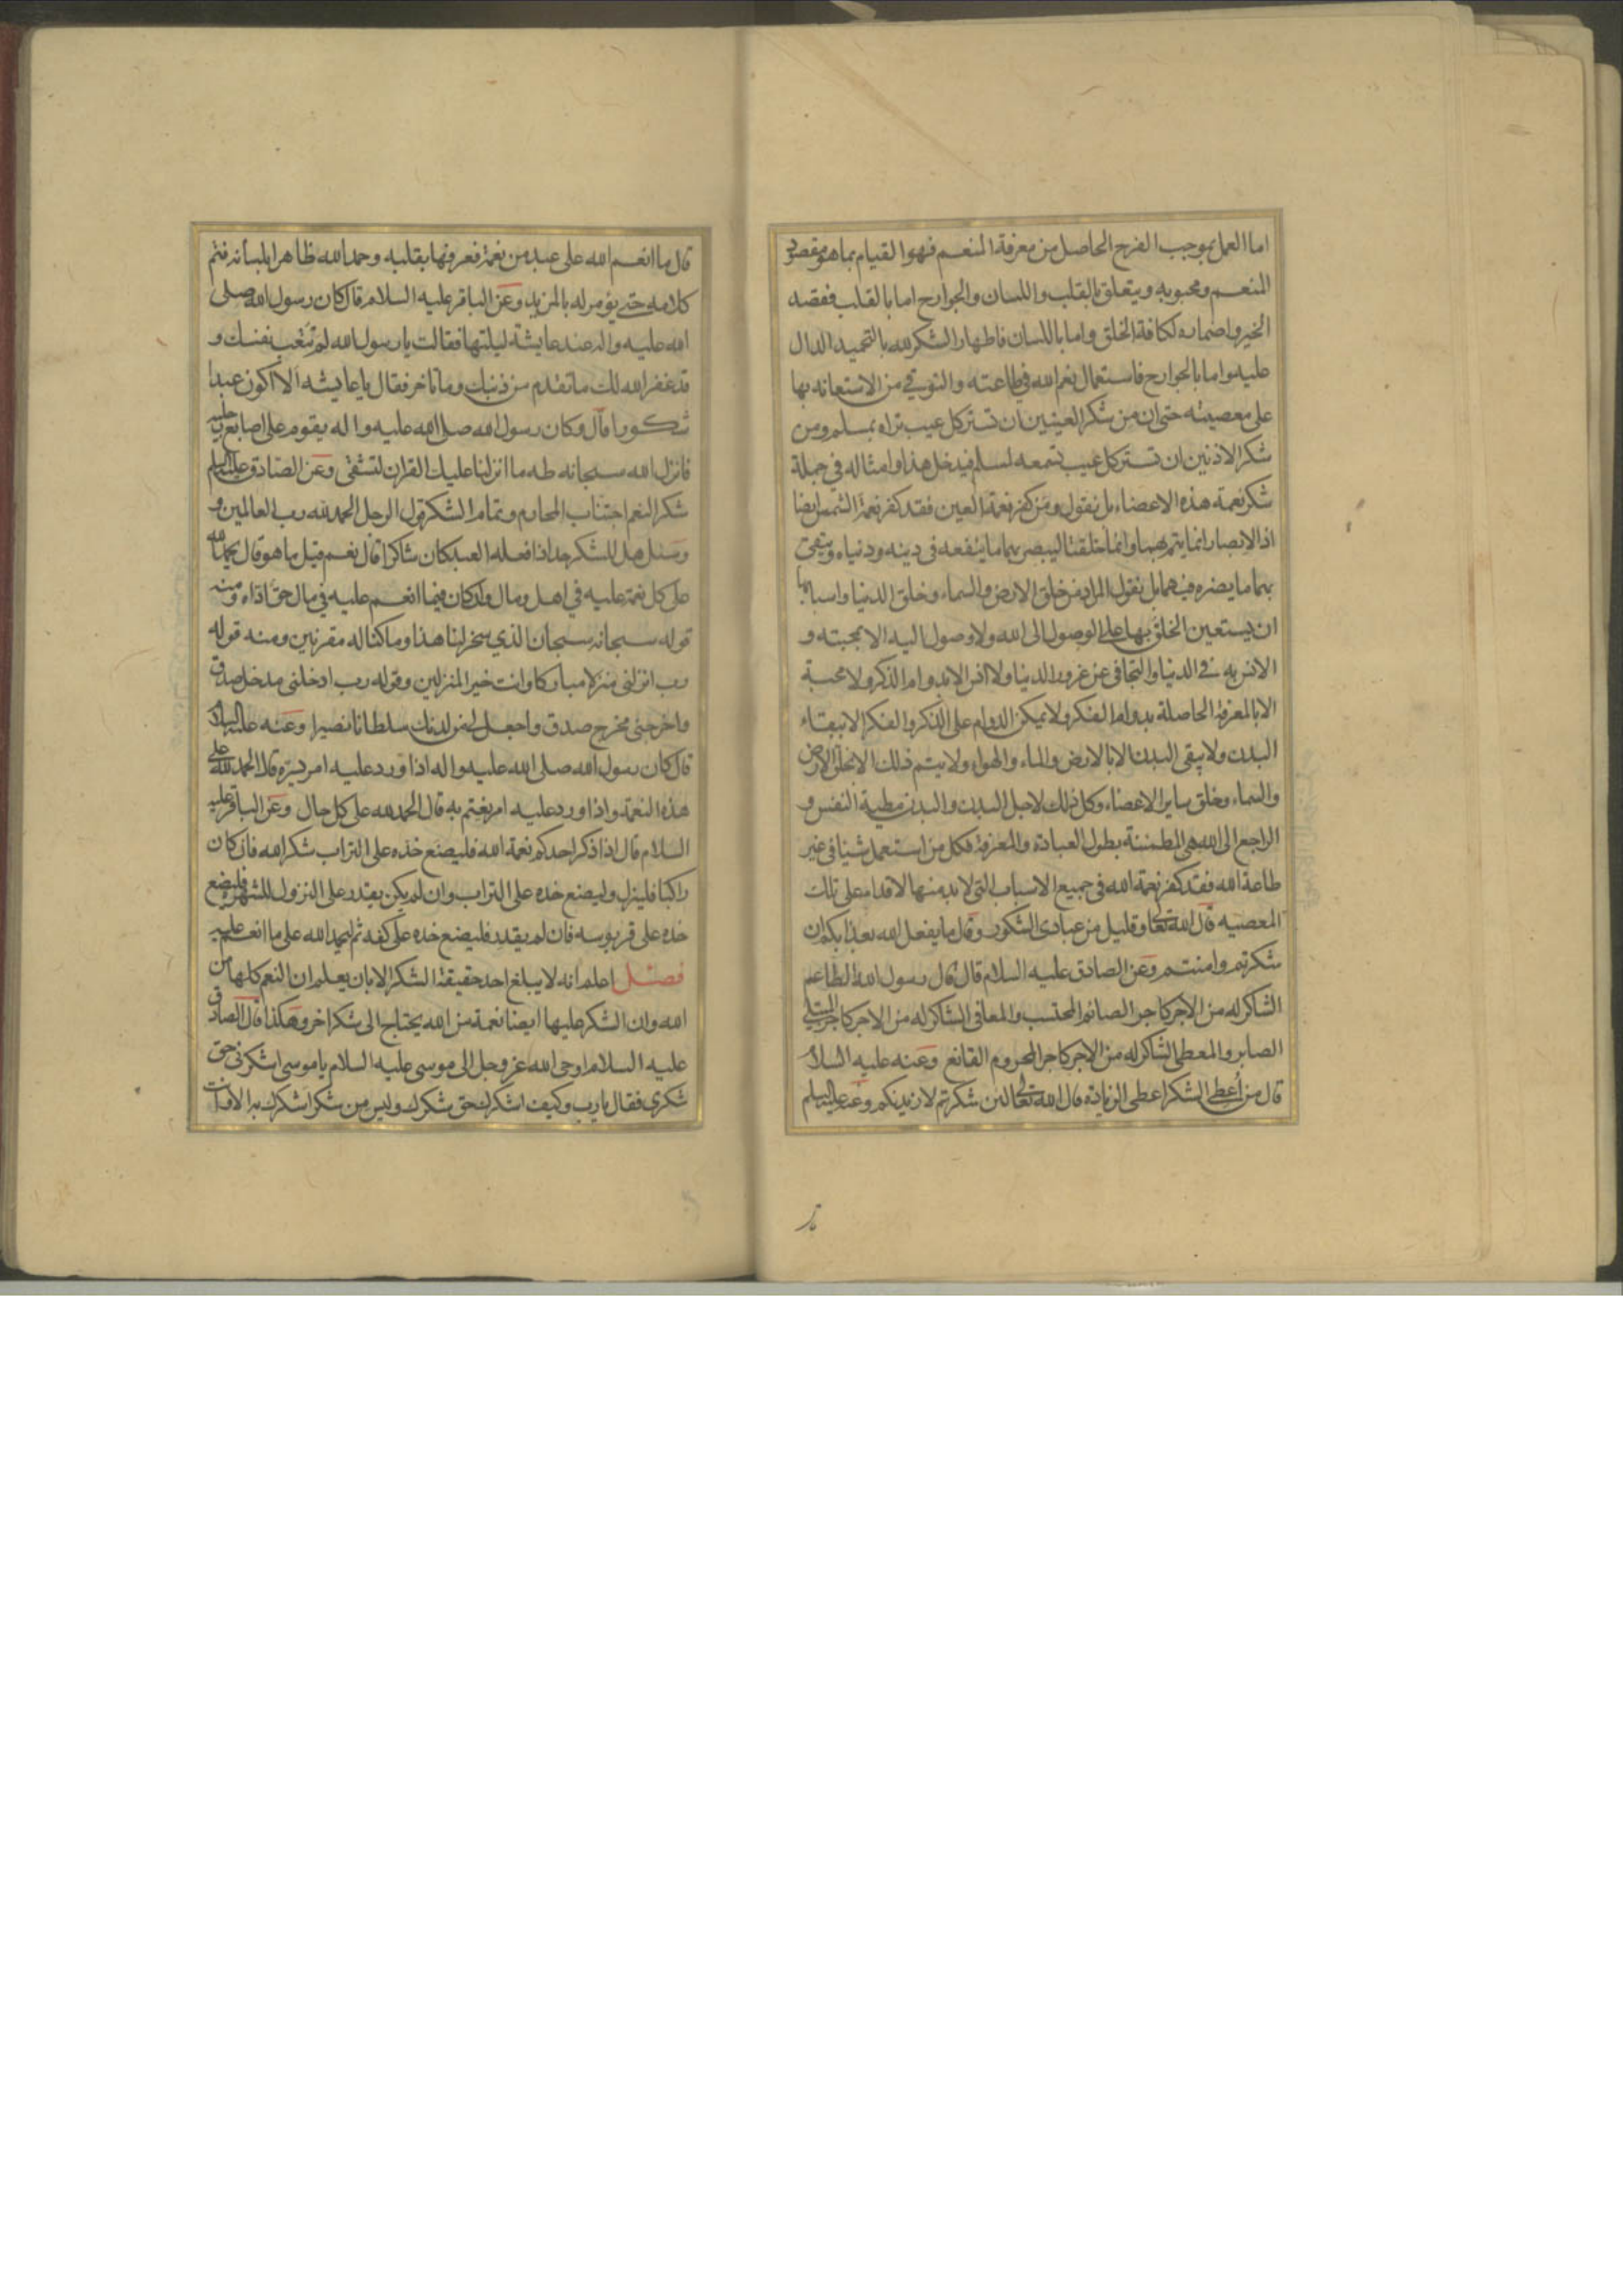 اما العمل بموجب الفرح الحاصل من معرفة المنعم فهو القيام بما هو مقصود
المنعم ومحبوبه ويتعلق بالقلب واللسان والجوارح اما بالقلب فقصد
الخير واضماره لكافة الخلق واما باللسان فاظهار الشكر لله بالتحميد الدال
عليه واما بالجوارح فاستعمال نعم الله في طاعته والتوقي من الاستعانه بها
على معصيته حتى ان من شكر العينين ان تستر كل عيب تراه بمسلم ومن
شكر الاذنين ان تستر كل عيب تسمعه لمسلم فيدخل هذا وامثاله في جملة
شكر نعمة هذه الاعضاء بل نقول ومن كفر نعمة العين فقد كفر نعمة الشمس ايضا
اذ الابصار انما يتم بهما وانما خلقتا ليبصر بهما ما ينفعه في دينه ودنياه ويتقي
بهما ما يضره فيهما بل نقول المراد من خلق الارض والسماء وخلق الدنيا واسبابها
ان يستعين الخلق بها على الوصول الى الله ولا وصول اليه الا بمحبته و
الانس به في الدنيا والتجافي عن غرور الدنيا ولا انس الا بدوام الذكر ولا محبة
الا بالمعرفة الحاصلة بدوام الفكر ولا يمكن الدوام على الذكر والفكر الا ببقاء
البدن ولا يبقى البدن الا بالارض والماء والهواء ولا يتم ذلك الا بخلق الارض
والسماء وخلق ساير الاعضاء وكل ذلك لاجل البدن والبدن مطية النفس و
الراجع الى الله هي المطمئنة بطول العبادة والمعرفة فكل من استعمل شيئا في غير
طاعة الله فقد كفر نعمة الله في جميع الاسباب التي لا بد منها لاقدامه على تلك
المعصيه قال الله تعالى وقليل من عبادي الشكور وقال ما يفعل الله بعذابكم ان
شكرتم وامنتم وعن الصادق عليه السلام قال قال رسول الله الطاعم
الشاكر له من الاجر كاجر الصائم المحتسب والمعافى الشاكر له من الاجر كاجر المبتلى
الصابر والمعطى الشاكر له من الاجر كاجر المحروم القانع وعنه عليه السلام
قال من أعطى الشكر اعطى الزيادة قال الله تعالى لئن شكرتم لازيدنكم وعنه عليه السلم
قال ما انعم الله على عبد من نعمة فعرفها بقلبه وحمد الله ظاهرا بلسانه فتم
كلامه حتى يؤمر له بالمزيد وعن الباقر عليه السلام قال كان رسول الله صلى
الله عليه واله عند عايشة ليلتها فقالت يا رسول الله لم تتعب نفسك و
قد غفر الله لك ما تقدم من ذنبك وما تاخر فقال يا عايشه ألا اكون عبدا
شكورا قال وكان رسول الله صلى الله عليه واله يقوم على اصابع رجليه
فانزل الله سبحانه طه ما انزلنا عليك القران لتشقى وعن الصادق عليه السلم
شكر النعم اجتناب المحارم وتمام الشكر قول الرجل الحمد لله رب العالمين و
وسئل هل للشكر حد اذا فعله العبد كان شاكرا قال نعم قيل ما هو قال يحمد الله
على كل نعمة عليه في اهل ومال وان كان فيما انعم عليه في مال حق اداه ومنه
قوله سبحانه سبحان الذي سخر لنا هذا وما كنا له مقرنين ومنه قوله
رب انزلني منزلا مباركا وانت خير المنزلين وقوله رب ادخلني مدخل صدق
واخرجني مخرج صدق واجعل لي من لدنك سلطانا نصيرا وعنه عليه السلام
قال كان رسول الله صلى الله عليه واله اذا ورد عليه امر يسره قال الحمد لله على
هذه النعمة واذا ورد عليه امر يغتم به قال الحمد لله على كل حال وعن الباقر عليه
السلام قال اذا ذكر احدكم نعمة الله فليضع خده على التراب شكرا لله فان كان
راكبا فلينزل وليضع خده على التراب وان لم يكن يقدر على النزول للشهرة فليضع
خده على قربوسه فان لم يقدر فليضع خده على كفه ثم ليحمد الله على ما انعم عليه
فصل اعلم انه لا يبلغ احد حقيقة الشكر الا بان يعلم ان النعم كلها من
الله وان الشكر عليها ايضا نعمة من الله يحتاج الى شكر اخر وهكذا قال الصادق
عليه السلام اوحى الله عز وجل الى موسى عليه السلام يا موسى اشكرني حق
شكري فقال يا رب وكيف اشكرك حق شكرك وليس من شكر اشكرك به الا وانت